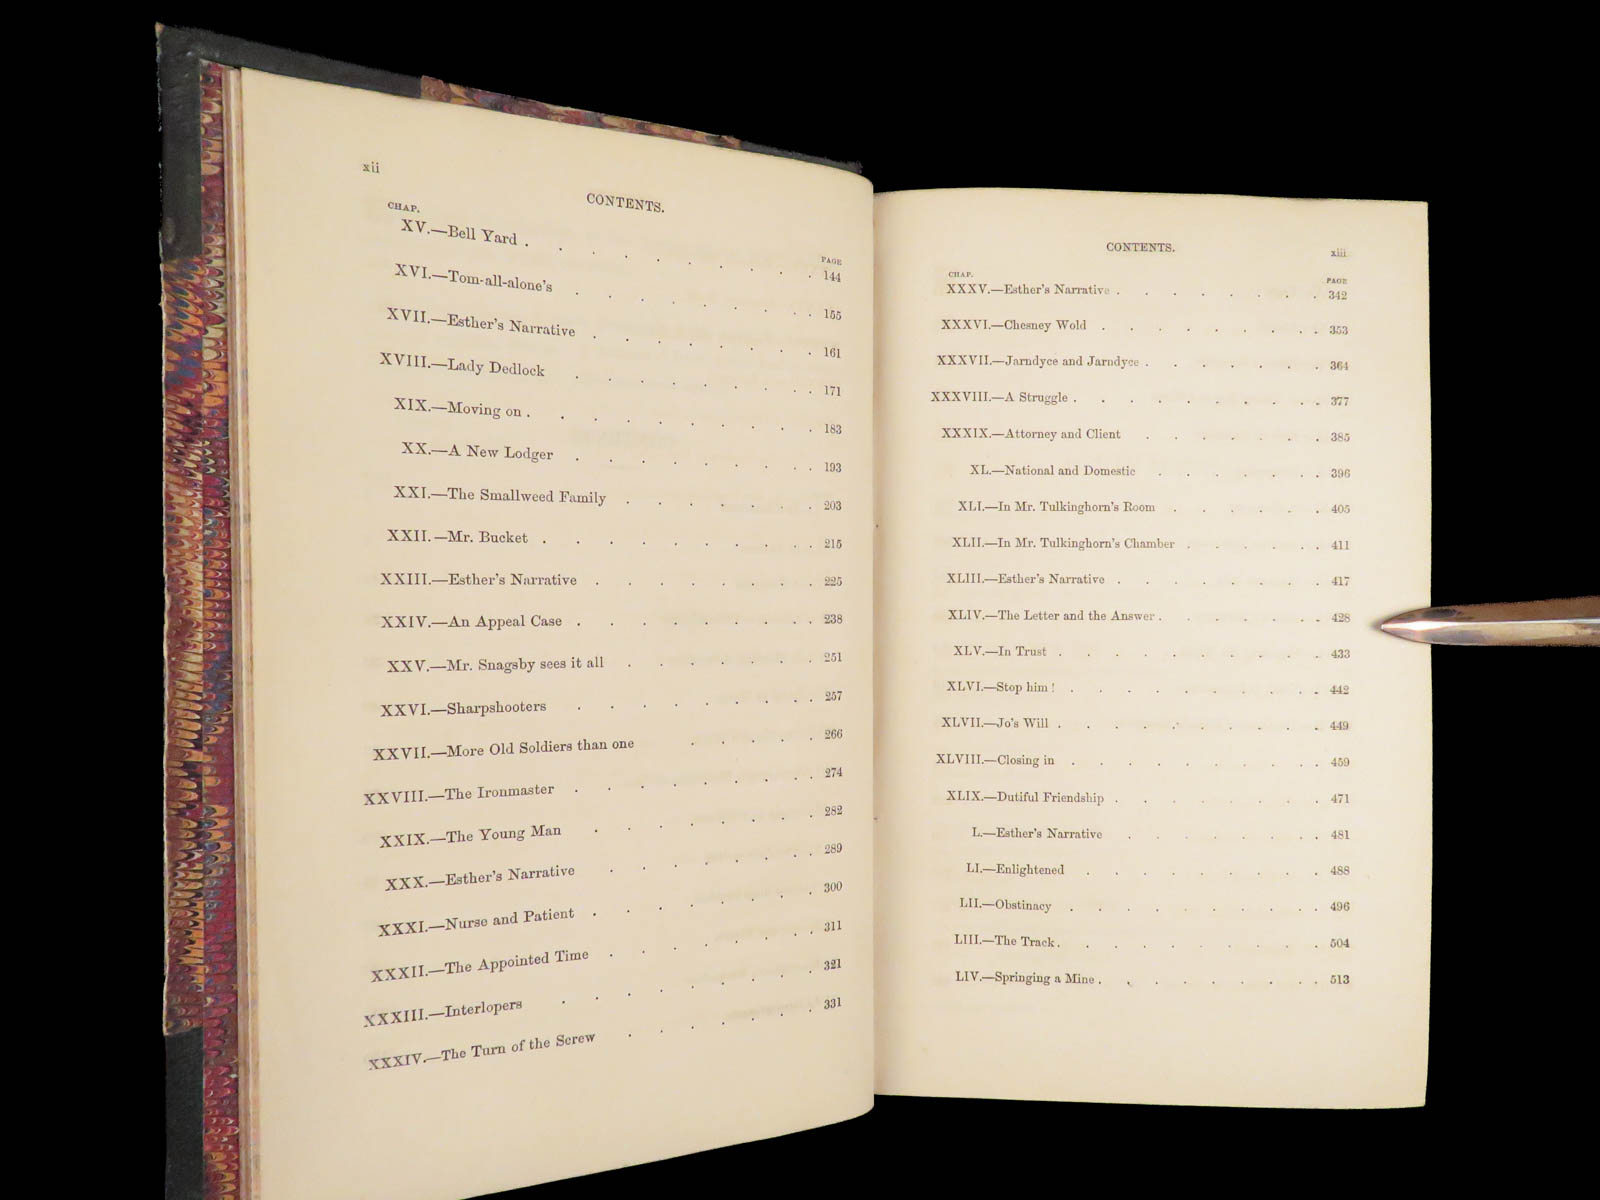 xii
CONTENTS.
CHAP.
PAGE
XV.—Bell Yard . . . . . . . . . . 144
XVI.—Tom-all-alone's . . . . . . . . 155
XVII.—Esther's Narrative . . . . . . . . 161
XVIII.—Lady Dedlock . . . . . . . . 171
XIX.—Moving on . . . . . . . . . . 183
XX.—A New Lodger . . . . . . . . 193
XXI.—The Smallweed Family . . . . . . . 203
XXII.—Mr. Bucket . . . . . . . . . 215
XXIII.—Esther's Narrative . . . . . . . . 225
XXIV.—An Appeal Case . . . . . . . . 238
XXV.—Mr. Snagsby sees it all . . . . . . . 251
XXVI.—Sharpshooters . . . . . . . . 257
XXVII.—More Old Soldiers than one . . . . . 266
XXVIII.—The Ironmaster . . . . . . . . 274
XXIX.—The Young Man . . . . . . . 282
XXX.—Esther's Narrative . . . . . . . 289
XXXI.—Nurse and Patient . . . . . . . . 300
XXXII.—The Appointed Time . . . . . . . 311
XXXIII.—Interlopers . . . . . . . . . 321
XXXIV.—The Turn of the Screw . . . . . . . 331
CONTENTS.
xiii
CHAP.
PAGE
XXXV.—Esther's Narrative . . . . . . . . 342
XXXVI.—Chesney Wold . . . . . . . . . 353
XXXVII.—Jarndyce and Jarndyce . . . . . . . 364
XXXVIII.—A Struggle . . . . . . . . . . 377
XXXIX.—Attorney and Client . . . . . . . 385
XL.—National and Domestic . . . . . . . 396
XLI.—In Mr. Tulkinghorn's Room . . . . . . 405
XLII.—In Mr. Tulkinghorn's Chamber . . . . . . 411
XLIII.—Esther's Narrative . . . . . . . . 417
XLIV.—The Letter and the Answer . . . . . . . 428
XLV.—In Trust . . . . . . . . . . 433
XLVI.—Stop him! . . . . . . . . . . 442
XLVII.—Jo's Will . . . . . . . . . . 449
XLVIII.—Closing in . . . . . . . . . . 459
XLIX.—Dutiful Friendship . . . . . . . . 471
L.—Esther's Narrative . . . . . . . . 481
LI.—Enlightened . . . . . . . . . 488
LII.—Obstinacy . . . . . . . . . . 496
LIII.—The Track . . . . . . . . . . 504
LIV.—Springing a Mine . . . . . . . . . 513